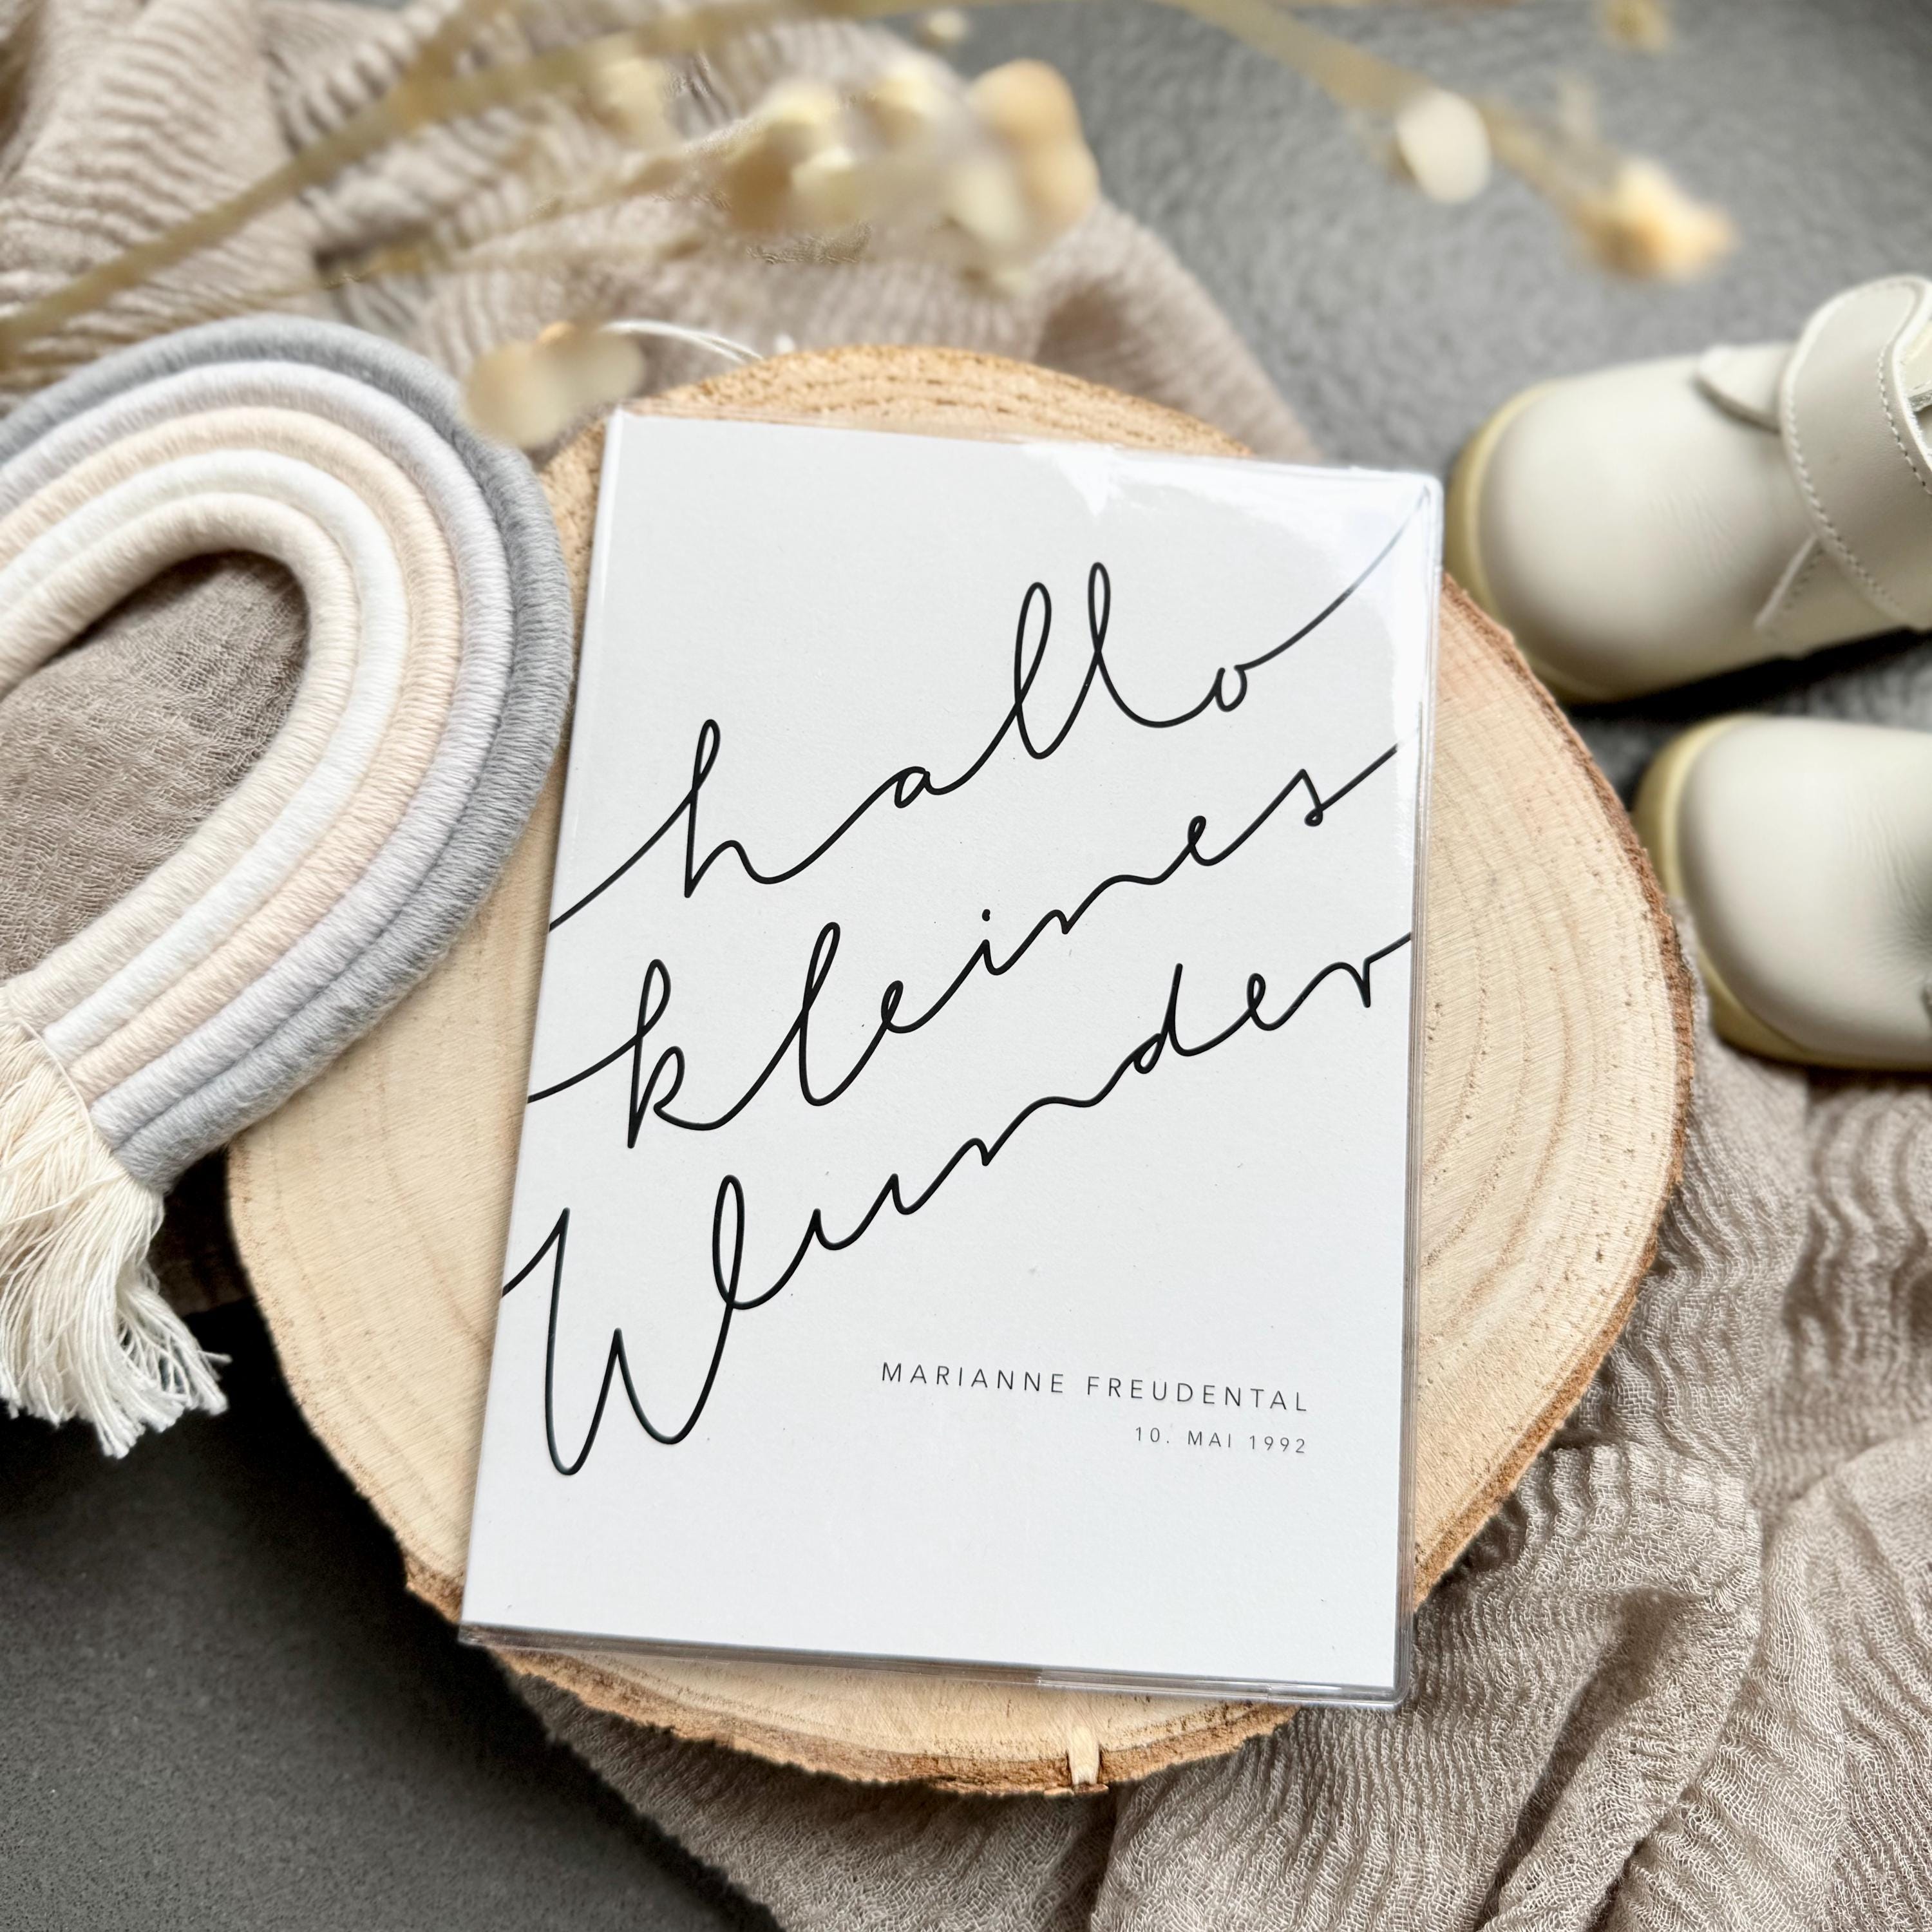 hallo
kleines
Wunder
MARIANNE FREUDENTAL
10. MAI 1992